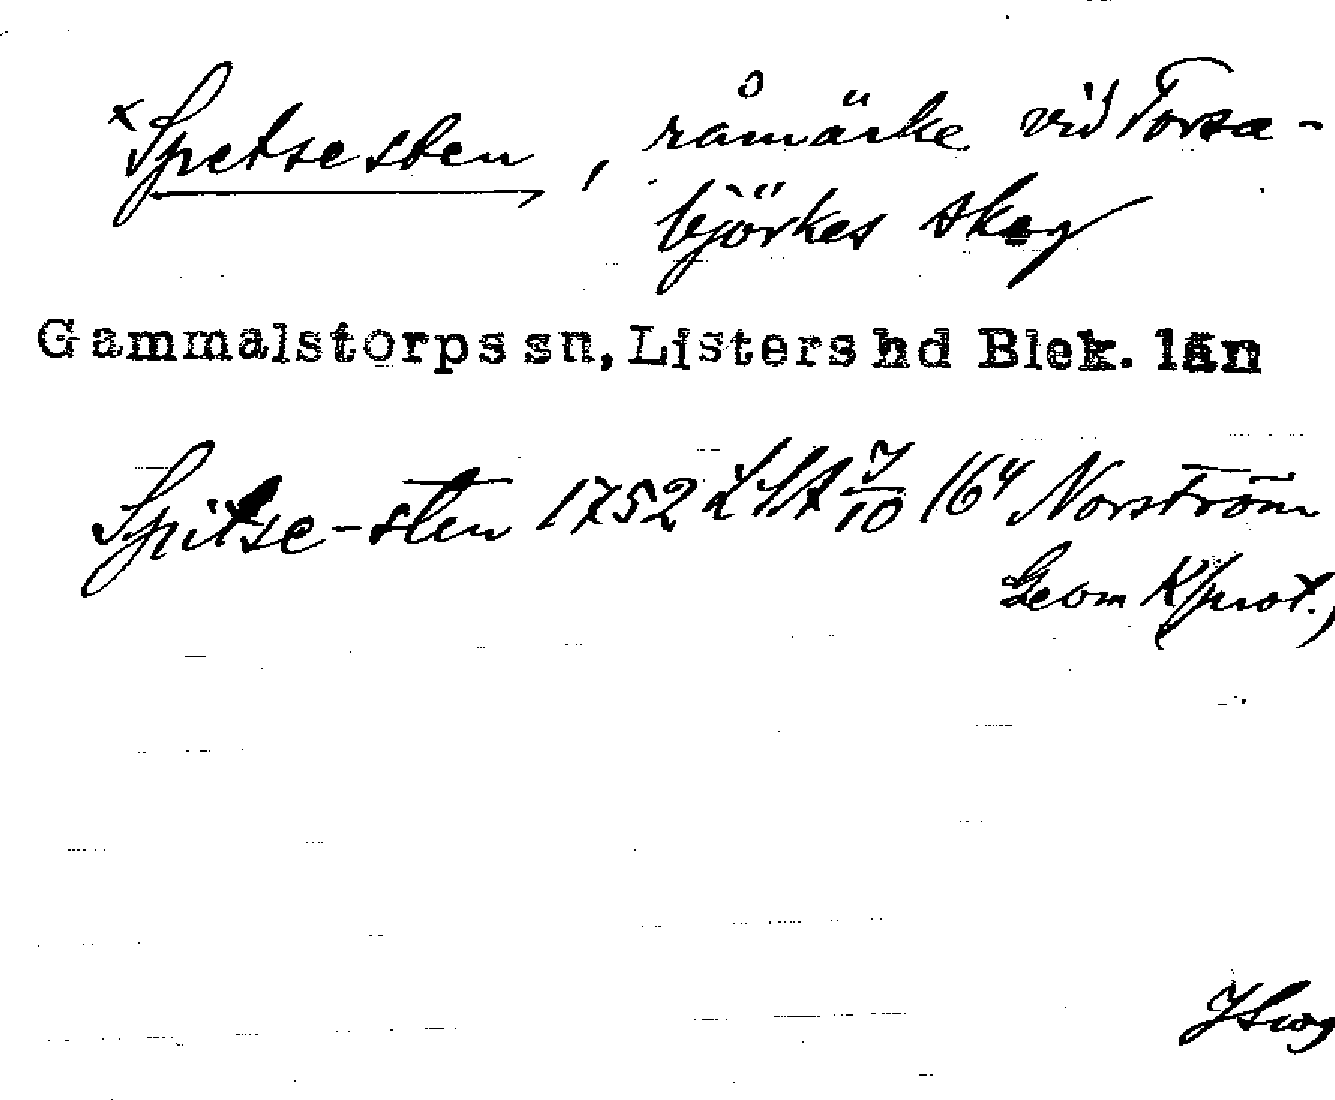 ×Spetsesten, råmärke vid Torsa-
björkes skog
Gammalstorps sn, Listers hd Blek. län
Spitse-sten 1752 LSA 7/10 164 Norström
Geom K/prot.,